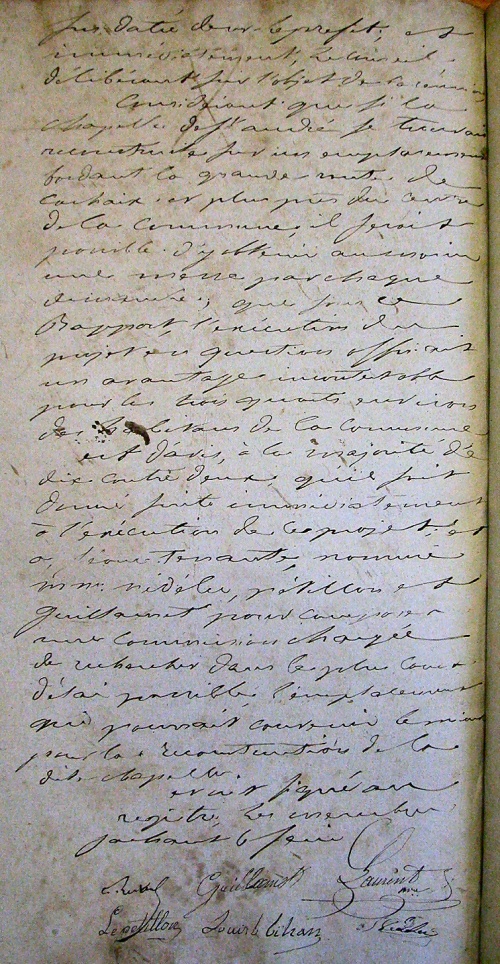 sus datée de mr le préfet; et
immédiatement, le conseil
délibérant sur l'objet de la réunion
Considérant que si la
chapelle de St andré se trouvait
reconstruite sur un emplacement
bordant la grande route de
carhaix et plus près du centre
de la commune, il serait
possible d'y obtenir au moins
une messe par chaque
dimanche; que sous ce
Rapport, l'exécution du
projet en question offrirait
un avantage incontestable
pour les trois quarts environ
des habitans de la commune
est d'avis, à la majorité de
dix contre deux, qu'il soit
donné suite immédiatement
à l'exécution de ce projet; et
a, séance tenante, nommé
mm. nédélec, pétillon et
Guillamot pour composer
une commission chargée
de rechercher dans le plus court
délai possible, l'emplacement
qui pourrait convenir le mieux
pour la reconstruction de la
dite chapelle.
et ont signé au
registre, les membres
sachant le faire
Guillamot Laurent
Le pétillon Louis le bihan